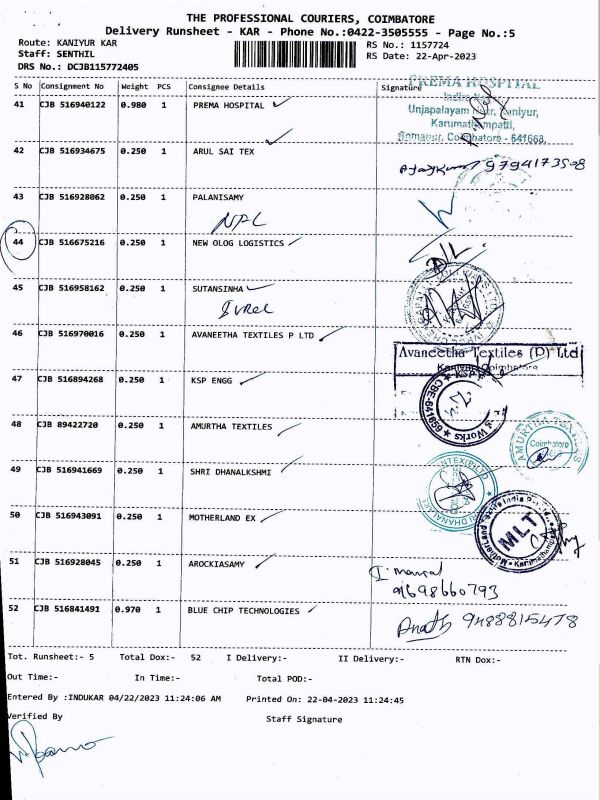 THE PROFESSIONAL COURIERS, COIMBATORE
Delivery Runsheet - KAR - Phone No.:0422-3505555 - Page No.:5
Route: KANIYUR KAR
Staff: SENTHIL
DRS No.: DCJB115772405
RS No.: 1157724
RS Date: 22-Apr-2023
S No Consignment No Weight PCS Consignee Details Signature
41 CJB 516940122 0.980 1 PREMA HOSPITAL
PREMA HOSPITAL
Unjapalayam Kaniyur,
Karumathampatti,
Somanur, Coimbatore - 641668.
42 CJB 516934675 0.250 1 ARUL SAI TEX
9794173508
43 CJB 516928062 0.250 1 PALANISAMY
NPL
44 CJB 516675216 0.250 1 NEW OLOG LOGISTICS
45 CJB 516958162 0.250 1 SUTANSINHA
46 CJB 516970016 0.250 1 AVANEETHA TEXTILES P LTD
Avaneetha Textiles (P) Ltd
Kaniyur, Coimbatore
47 CJB 516894268 0.250 1 KSP ENGG
48 CJB 89422720 0.250 1 AMURTHA TEXTILES
AMURTHA TEXTILES
Coimbatore
49 CJB 516941669 0.250 1 SHRI DHANALKSHMI
50 CJB 516943091 0.250 1 MOTHERLAND EX
MLT
51 CJB 516928045 0.250 1 AROCKIASAMY
9698660793
52 CJB 516841491 0.970 1 BLUE CHIP TECHNOLOGIES
9488815478
Tot. Runsheet:- 5 Total Dox:- 52 I Delivery:- II Delivery:- RTN Dox:-
Out Time:- In Time:- Total POD:-
Entered By :INDUKAR 04/22/2023 11:24:06 AM Printed On: 22-04-2023 11:24:45
Verified By Staff Signature